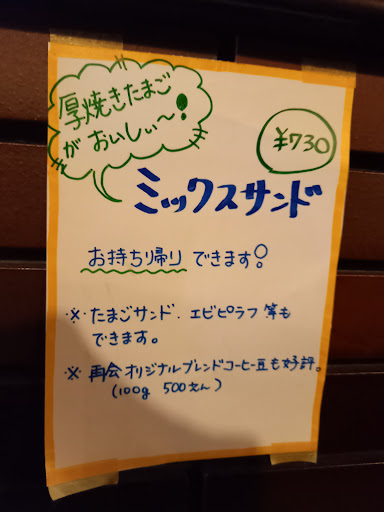 厚焼きたまご
がおいしぃ〜!
¥730
ミックスサンド
お持ち帰りできます!
※たまごサンド、エビピラフ等も
できます。
※再会オリジナルブレンドコーヒー豆も好評。
(100g 500えん)